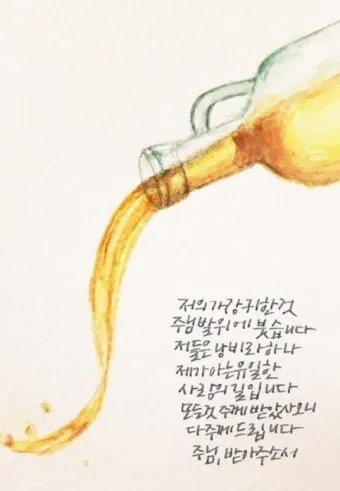 저의 가장 귀한 것
주님 발 위에 붓습니다
저들은 낭비라 하나
제가 아는 유일한
사랑의 길입니다
모든 것 주께 받았사오니
다 주께 드립니다
주님, 받아주소서